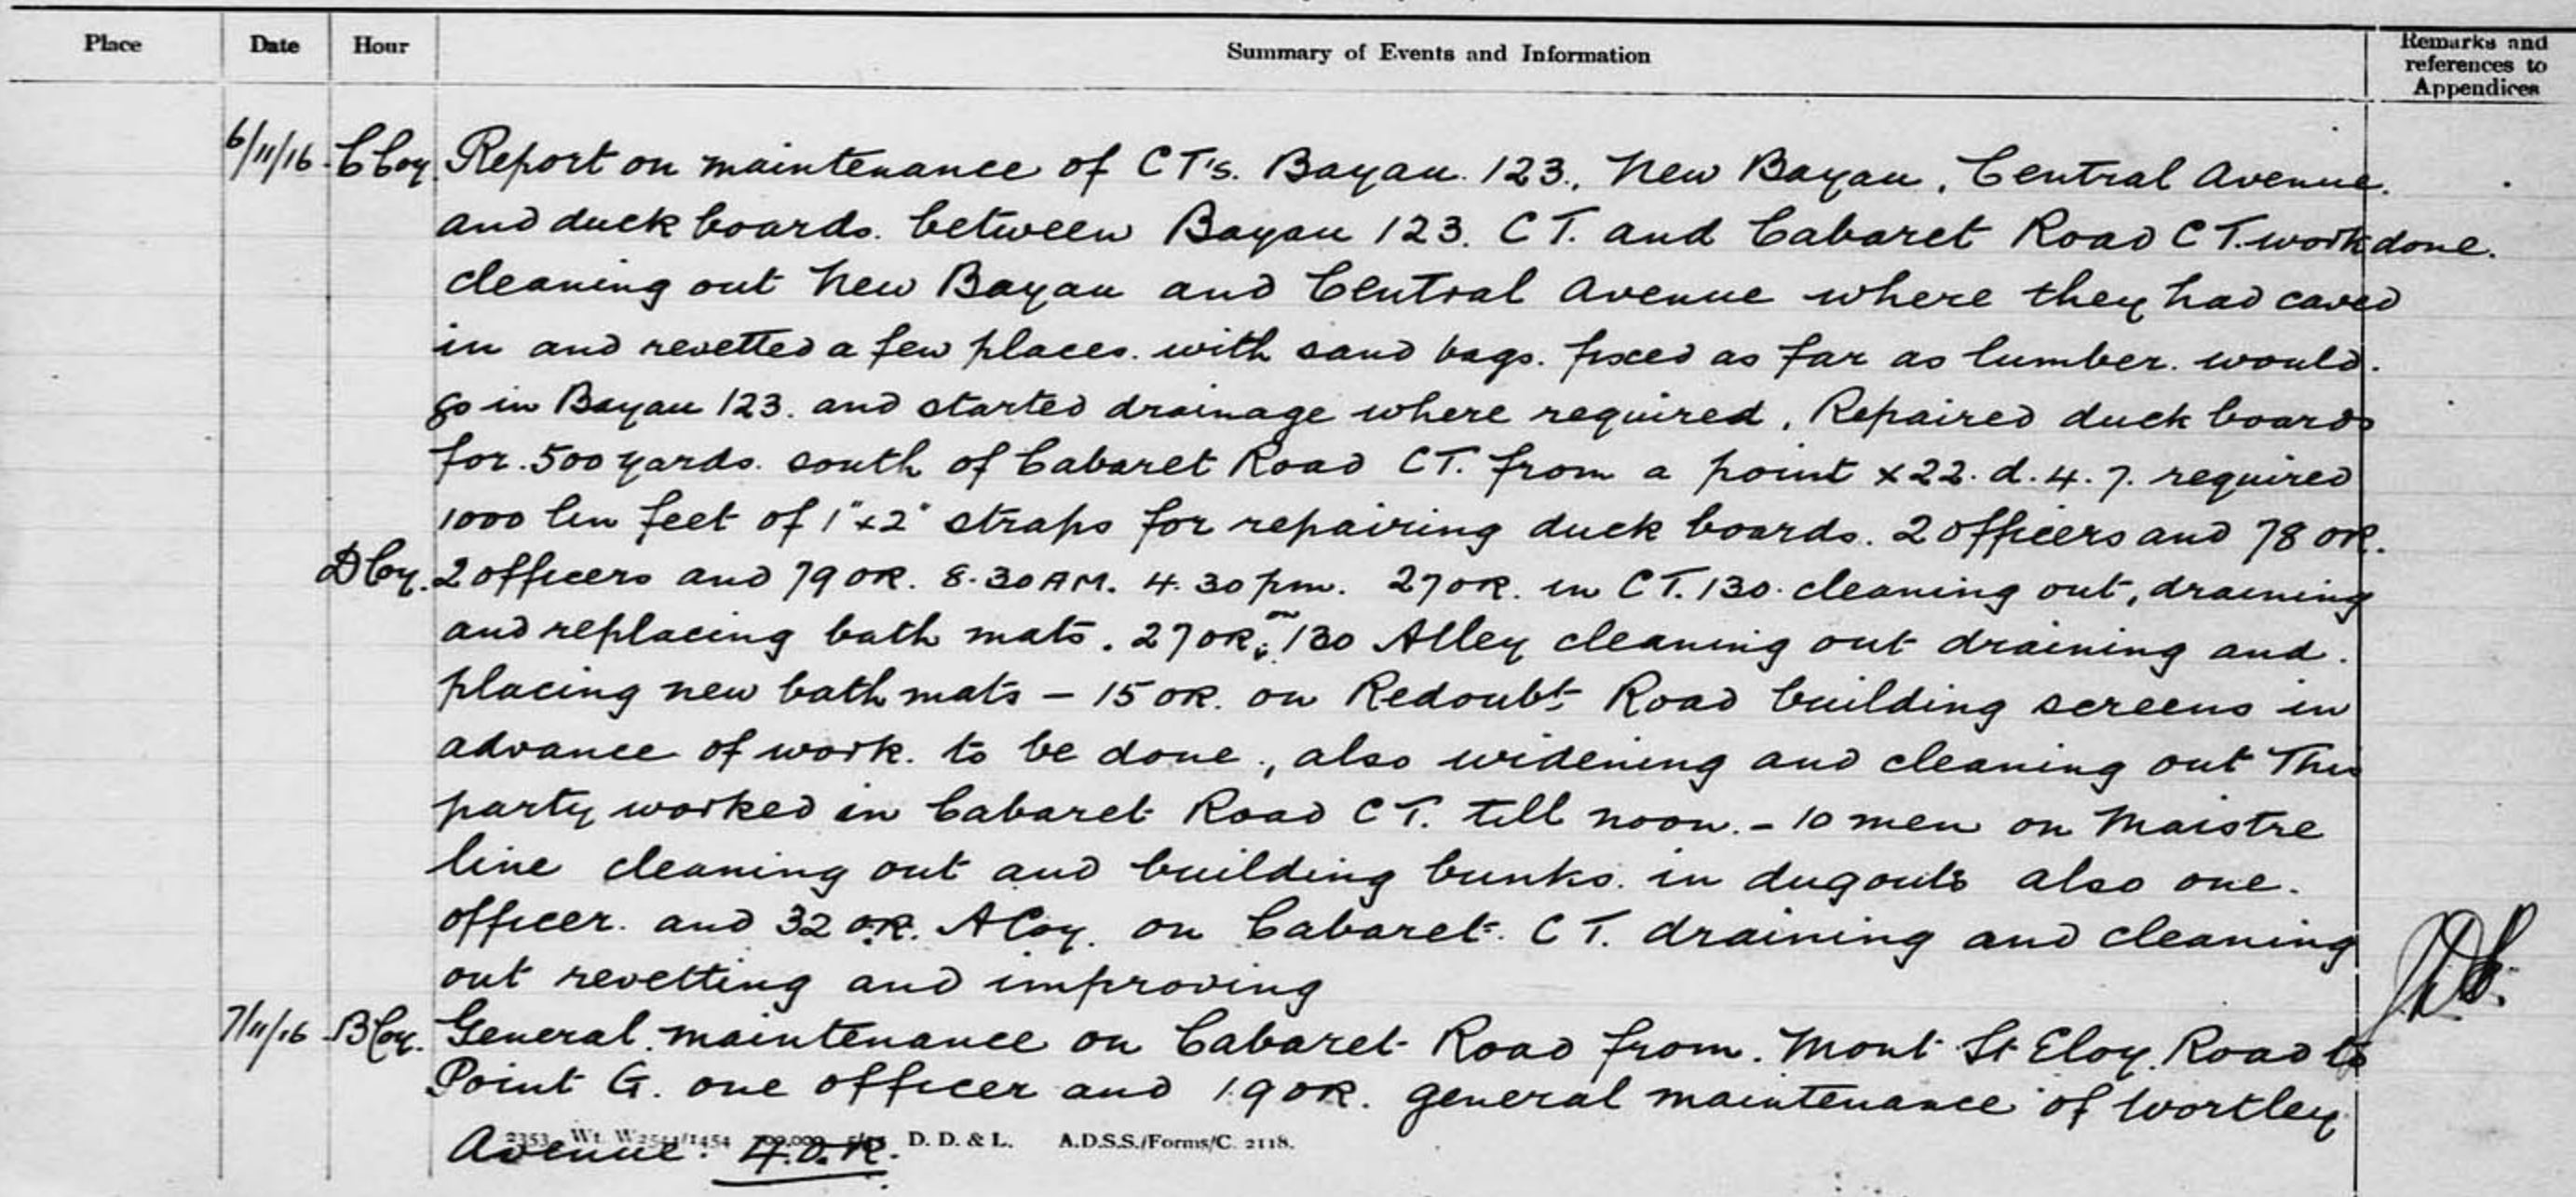 Place Date Hour Summary of Events and Information Remarks and references to Appendices
6/11/16 C Coy. Report on maintenance of C T's. Bayau. 123., New Bayau, Central Avenue.
and duck boards. between Bayau 123. C T. and Cabaret Road C T. work done.
cleaning out New Bayau and Central Avenue where they had caved
in and revetted a few places. with sand bags. fixed as far as lumber. would.
go in Bayau 123. and started drainage where required, Repaired duck boards
for. 500 yards. south of Cabaret Road CT. from a point X22. d. 4. 7. required
1000 lin feet of 1"x2" straps for repairing duck boards. 2 officers and 78 OR.
D Coy. 2 officers and 79 OR. 8.30 AM. 4.30 pm. 27 OR. in C T. 130. cleaning out, draining
and replacing bath mats. 27 OR. on 130 Alley cleaning out draining and.
placing new bath mats - 15 OR. on Redoubt Road building screens in
advance of work. to be done, also widening and cleaning out This
party worked in Cabaret Road C T. till noon. - 10 men on Maistre
line cleaning out and building bunks. in dugouts also one.
officer. and 32 O.R. A Coy. on Cabaret. C T. draining and cleaning
out revetting and improving
7/11/16 B Coy. General. maintenance on Cabaret Road from. Mont St Eloy. Road to
Point G. one officer and 19 OR. general maintenance of Wortley
Avenue. 4.O.R.
2353 Wt. W2544/1454 700,000 5/15 D. D. & L. A.D.S.S./Forms/C. 2118.